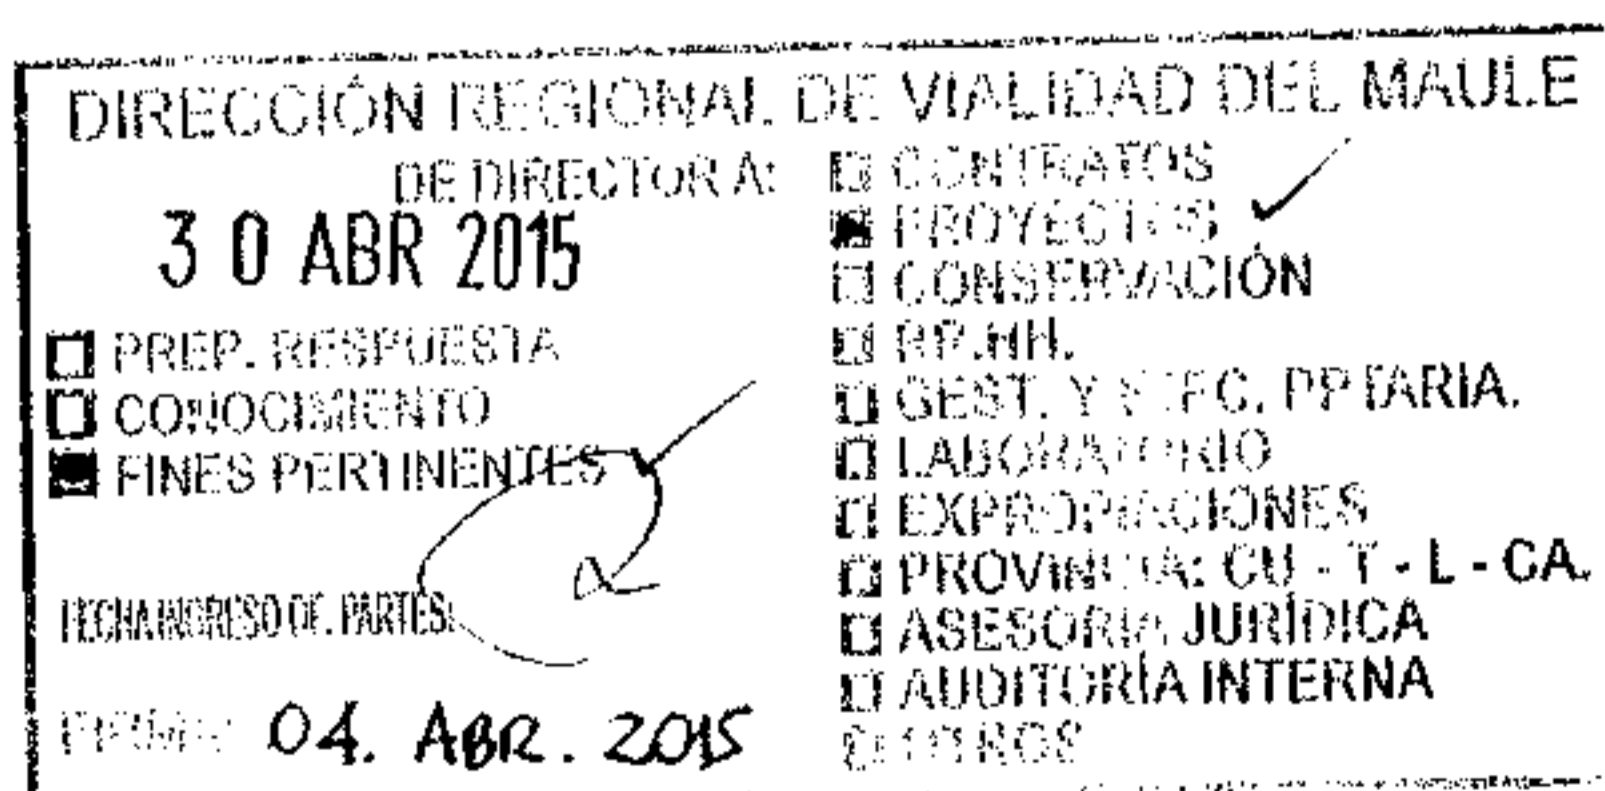 DIRECCIÓN REGIONAL DE VIALIDAD DEL MAULE
DE DIRECTOR A:
30 ABR 2015
PREP. RESPUESTA
CONOCIMIENTO
FINES PERTINENTES
FECHA INGRESO OF. PARTES:
04. ABR. 2015
CONTRATOS
PROYECTOS
CONSERVACIÓN
RR.HH.
GEST. Y PPTARIA.
LABORATORIO
EXPROPIACIONES
PROVINCIA: CU - T - L - CA.
ASESORIA JURÍDICA
AUDITORÍA INTERNA
OTROS